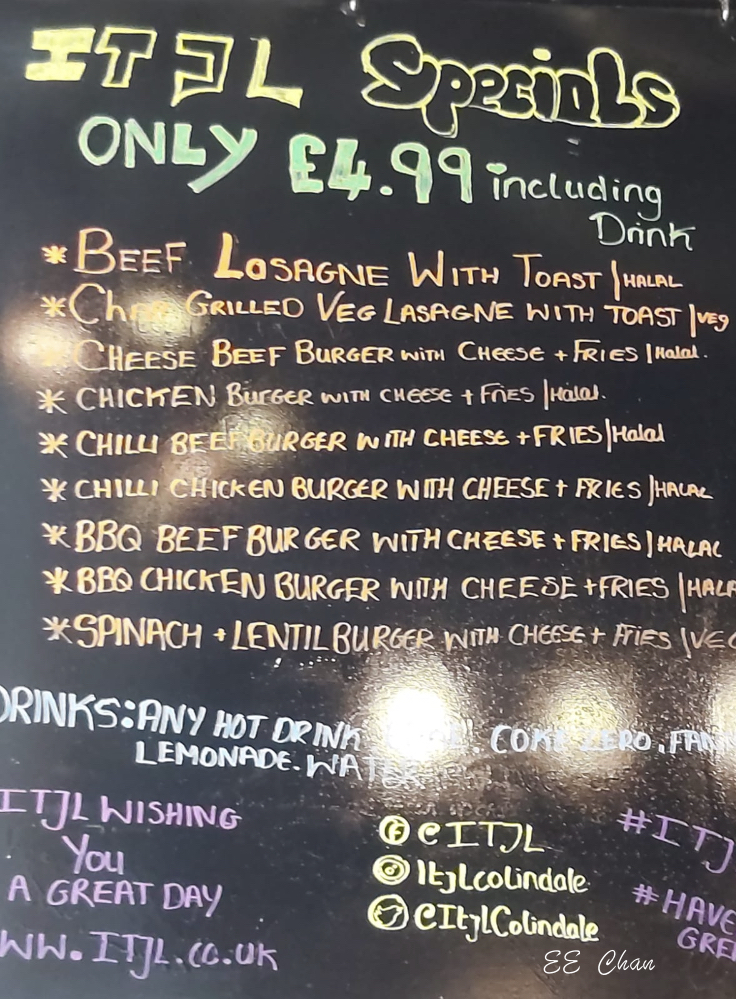 ITJL Specials
ONLY £4.99 including
Drink
* BEEF LASAGNE WITH TOAST | HALAL
* Char GRILLED VEG LASAGNE WITH TOAST | veg
CHEESE BEEF BURGER with CHEESE + FRIES | Halal.
* CHICKEN BURGER WITH CHEESE + FRIES | Halal.
* CHILLI BEEF BURGER WITH CHEESE + FRIES | Halal
* CHILLI CHICKEN BURGER WITH CHEESE + FRIES | HALAL
* BBQ BEEF BURGER WITH CHEESE + FRIES | HALAL
* BBQ CHICKEN BURGER WITH CHEESE + FRIES | HALA
* SPINACH + LENTIL BURGER WITH CHEESE + FRIES | VEG
DRINKS: ANY HOT DRINK . COKE ZERO. FAN
LEMONADE. WATER
ITJL WISHING
You
A GREAT DAY
WW.ITJL.CO.UK
@ITJL
Itjlcolindale
@ItjlColindale
#ITJ
#HAVE
GREA
EE Chan